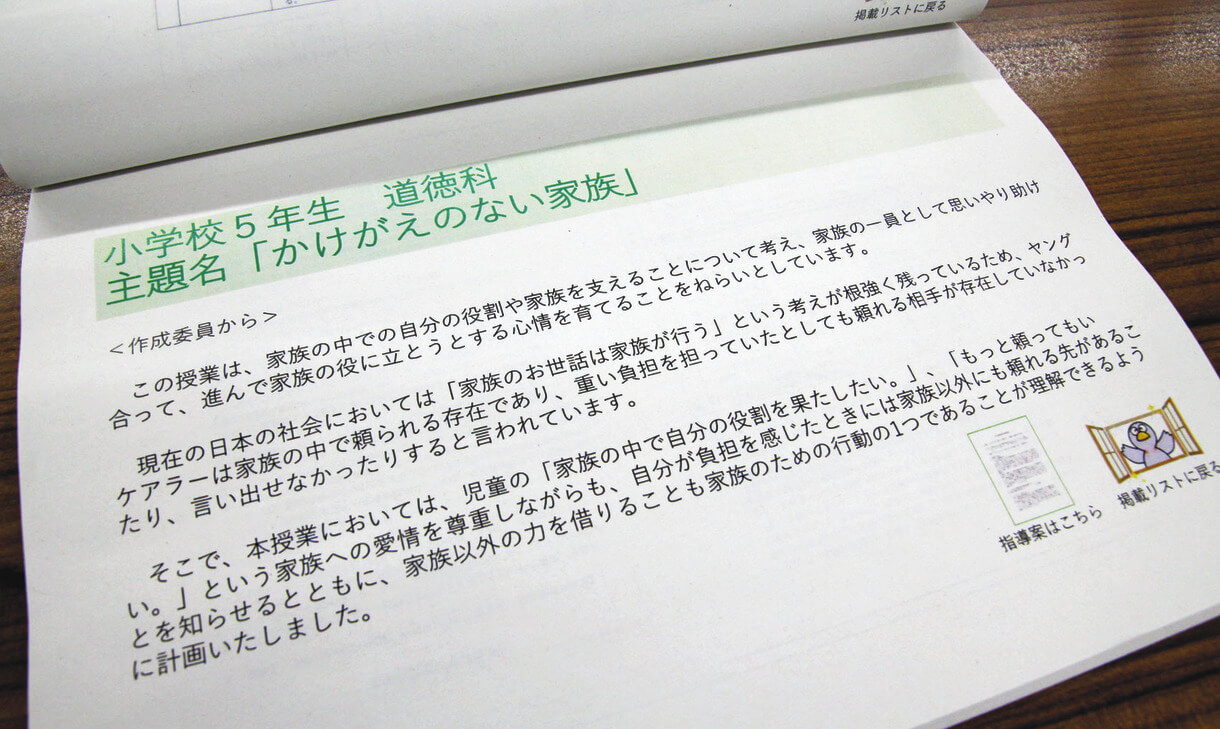 掲載リストに戻る
小学校５年生　道徳科
主題名「かけがえのない家族」
＜作成委員から＞
この授業は、家族の中での自分の役割や家族を支えることについて考え、家族の一員として思いやり助け
合って、進んで家族の役に立とうとする心情を育てることをねらいとしています。
現在の日本の社会においては「家族のお世話は家族が行う」という考えが根強く残っているため、ヤング
ケアラーは家族の中で頼られる存在であり、重い負担を担っていたとしても頼れる相手が存在していなかっ
たり、言い出せなかったりすると言われています。
そこで、本授業においては、児童の「家族の中で自分の役割を果たしたい。」、「もっと頼ってもい
い。」という家族への愛情を尊重しながらも、自分が負担を感じたときには家族以外にも頼れる先があるこ
とを知らせるとともに、家族以外の力を借りることも家族のための行動の1つであることが理解できるよう
に計画いたしました。
指導案はこちら
掲載リストに戻る